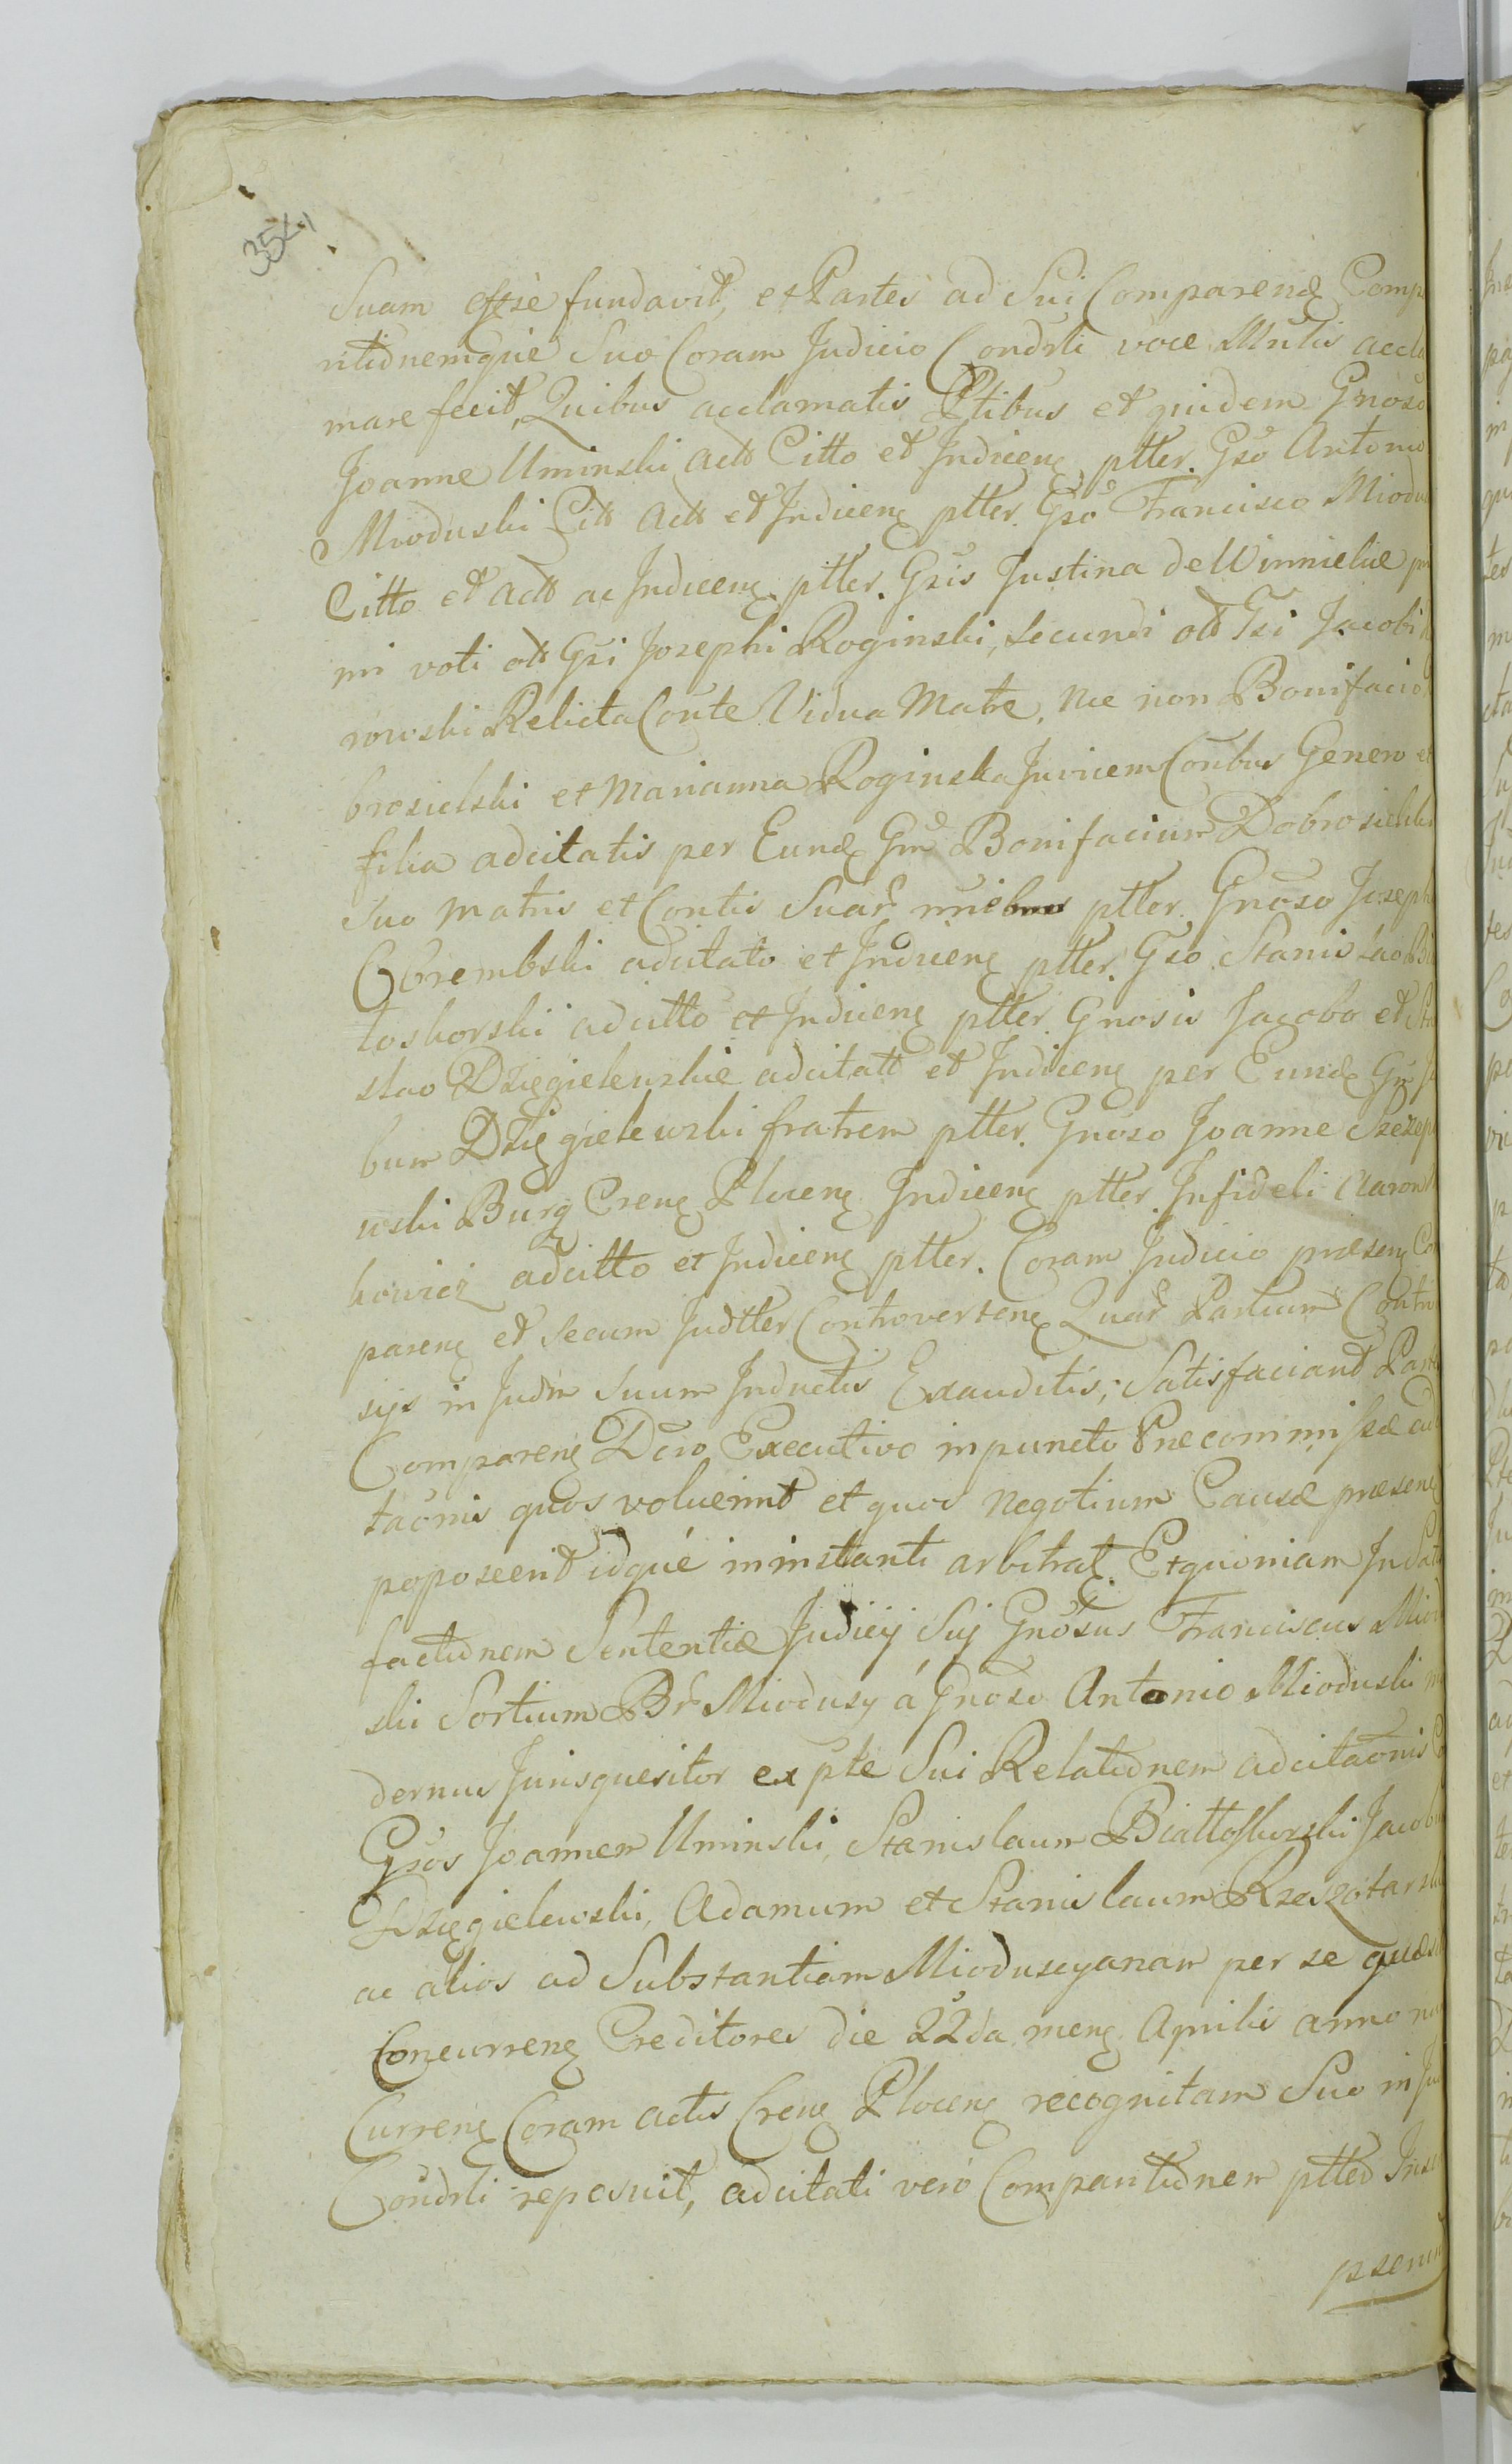 354
Suam esse fundavit, et Partes ad Sui Comparend Comp
ritiõnemque Suo Coram Judicio Condrli voce Mnlis accla
mare fecit, Quibus acclamatis Ptibus et quidem Gnoso
Joanne Uminski actt Citto et Indiceng ptter. Gso Antonio
Mioduski Citt actt et Indiceng ptter. Gso Francisco Miodu
Citto et actt ac Indiceng ptter. Gsis Justina de Winnickie pri
mi voti ott Gsi Josephi Roginski, secundi ott Gsi Jacobi
rowski Relicta Conte Vidua Matre, nec non Bonifacio
brosielski et Marianna Roginska Invicem Conbus Genero et
filia adcitatis per Eund Gm Bonifacium Dobrosielski
suo matris et Contis Suar nniebus ptter. Gnoso Joseph
Grembski adcitato et Indiceng ptter. Gso Stanislao Bia
toskorski adcitto et Indiceng ptter. Gnosis Jacobo et Sta
slao Dzięgielewskie adcitatt et Indiceng per Eund Gm Ja
bum Dzięgielewski fratrem ptter. Gnoso Joanne Szczep
wski Burg Creng Ploceng Indiceng ptter. Infideli Aaron
kowicz adcitto et Indiceng ptter. Coram Judicio præseng Com
pareng et secum Judtter Controverteng Quar Partium Contro
sijs in Judm suum Inductis Exauditis; Satisfaciant Part
Compareng Dcro Executivo in puncto Præcommissæ ad
taonis quos voluerint et quos negotium Causæ præseng
poposcerit idque in instanti arbitrat. Et quoniam In Sat
factiõnem Sententiæ Judicij Suj Gnosus Franciscus Miod
ski Sortium Br Miodusy á Gnoso Antonio Mioduski mo
dernus Jurisquesitor ex pte Sui Relatiõnem adcitaõnis
Gsos Joannem Uminski, Stanislaum Białłoskorski Jacob
Dzięgielewski, Adamum et Stanislaum Rzeszotarsk
ac alios ad Substantiam Mioduscyanam per se quæs
Concurreng Creditores die 22da meng Aprilis anno
Curreng Coram actis Creng Ploceng recognitam Suo in Ju
Condrli reposuit, adcitati vero Comparitiõnem ptted Ins
pserun